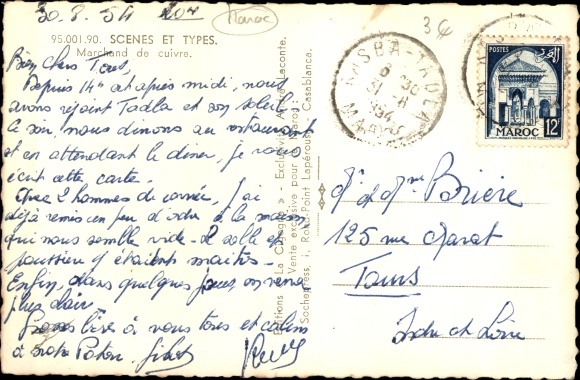 30.8.54
Maroc
36
95.001.90. SCENES ET TYPES.
Marchand de cuivre.
Bien chers Tous,
Depuis 14h cet après midi, nous
avons rejoint Tadla et son soleil
Ce soir, nous dinons au restaurant
et en attendant le diner, je vous
écrit cette carte.
Avec 2 hommes de corvée, j'ai
déjà remis un peu d'ordre à la maison
qui nous semble vide. Le sable et
poussière y étaient maîtres.
Enfin, dans quelques jours, on verra
plus clair.
Grosses bises à vous tous et
à notre
Editions « La Cigogne » - Exclusivité
Vente exclusive pour
Sochepress, 1, Rond-Point Lapérouse, Casablanca.
KASBA-TADLA
31 -8
1954
MAROC
POSTES
MAROC
12F
Mr et Mme Brière
125 rue Marat
Tours
Indre et Loire